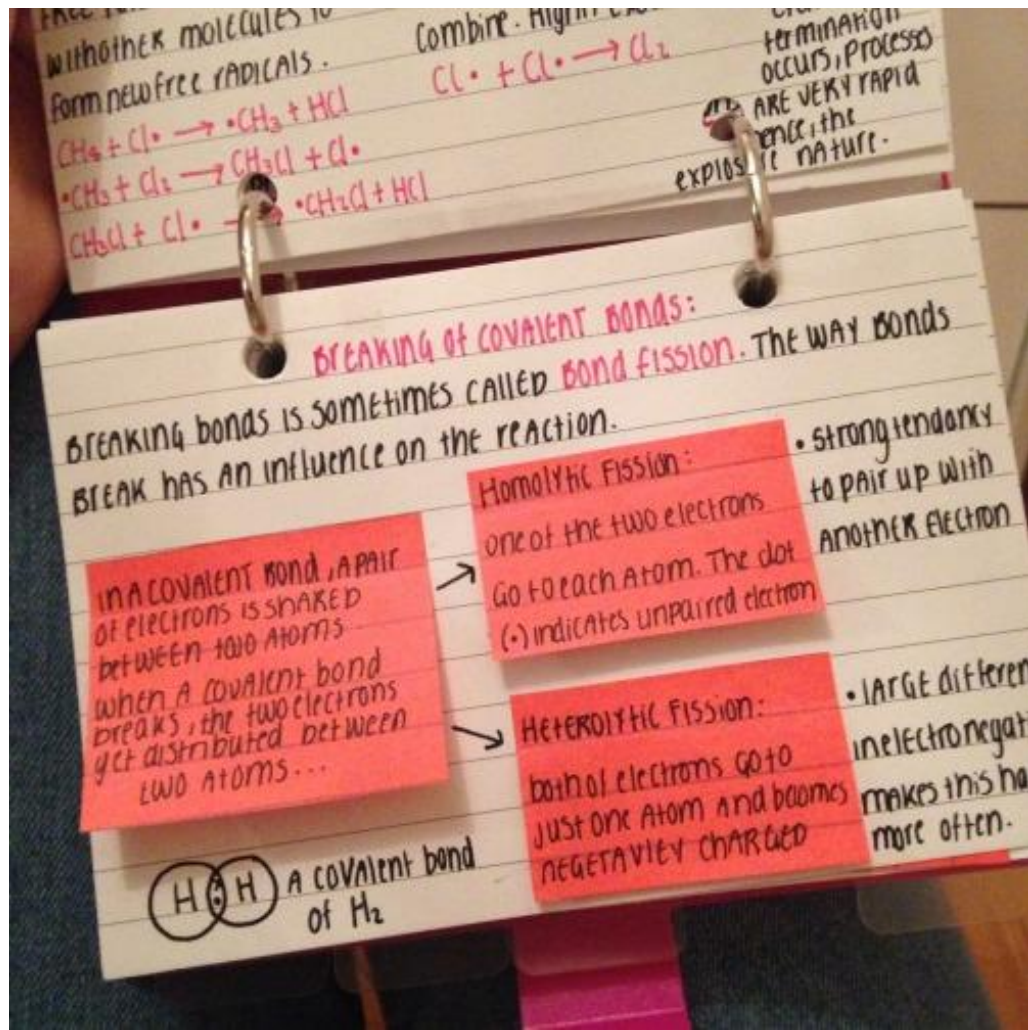 withother molecules to
form new free radicals.
CH₄ + Cl• → •CH₃ + HCl
•CH₃ + Cl₂ → CH₃Cl + Cl•
CH₃Cl + Cl• → •CH₂Cl + HCl
combine.
Cl• + Cl• → Cl₂
termination
occurs, processes
ARE VERY RAPID
the
nature.
BREAKING of COVALENT BONDS:
BREAKING bonds is sometimes called Bond fission. The way Bonds
Break has an influence on the reaction.
IN A COVALENT BOND, A PAIR
of electrons is shared
between two Atoms
when a covalent bond
breaks, the two electrons
get distributed between
two Atoms...
Homolytic Fission:
one of the two electrons
Go to each Atom. The dot
(•) indicates unpaired electron
• strong tendancy
to pair up with
another electron
Heterolytic Fission:
both of electrons go to
just one Atom and bcomes
negetavity charged
• large
in
makes this
more often.
H : H A covalent bond
of H₂